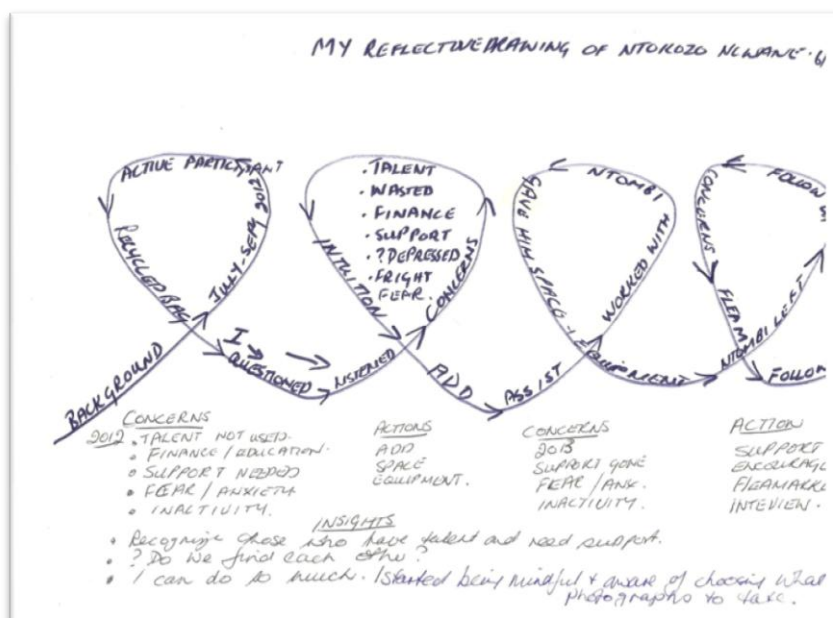 MY REFLECTIVE DRAWING OF NTOKOZO NCWANE
ACTIVE PARTICIPANT
JULY-SEPT 2012
RECYCLED BAG
BACKGROUND
I
QUESTIONED
LISTENED
• TALENT
• WASTED
• FINANCE
• SUPPORT
• ? DEPRESSED
• FRIGHT
FEAR.
INTUITION
CONCERNS
ADD
ASSIST
NTOMBI
GAVE HIM SPACE +
EQUIPMENT
WORKED WITH
FOLLOW
CONCERNS
FLEAM
NTOMBI LEFT
FOLLOW
CONCERNS
2012 • TALENT NOT USED.
• FINANCE / EDUCATION.
• SUPPORT NEEDED
• FEAR / ANXIETY
• INACTIVITY.
ACTIONS
ADD
SPACE
EQUIPMENT.
CONCERNS
2013
SUPPORT GONE
FEAR / ANX.
INACTIVITY.
ACTION
SUPPORT
ENCOURAGE
FLEAMARKE
INTEVIEW.
INSIGHTS
• Recognize those who have talent and need support.
• ? Do we find each other?
• I can do so much. I started being mindful + aware of choosing what
photographs to take.